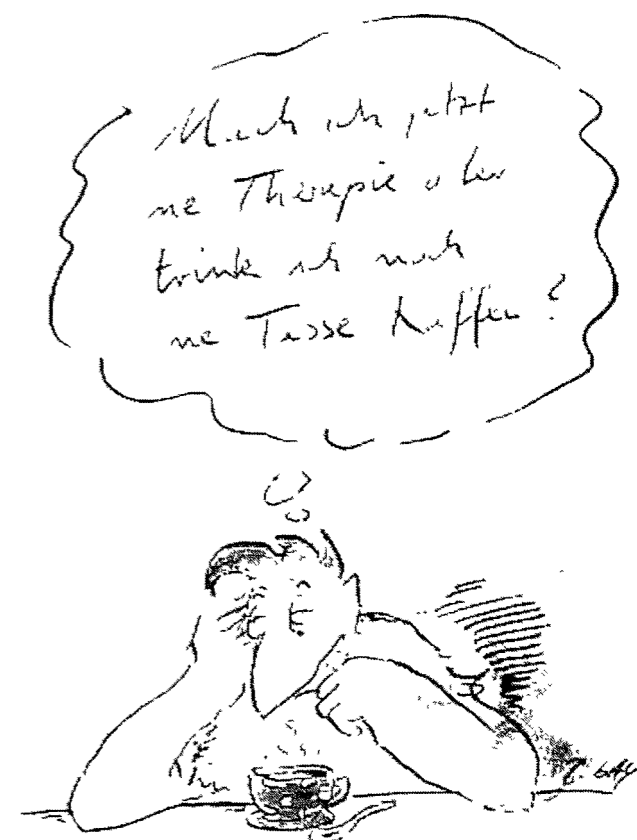 Mach ich jetzt
ne Therapie oder
trink ich noch
ne Tasse Kaffee?